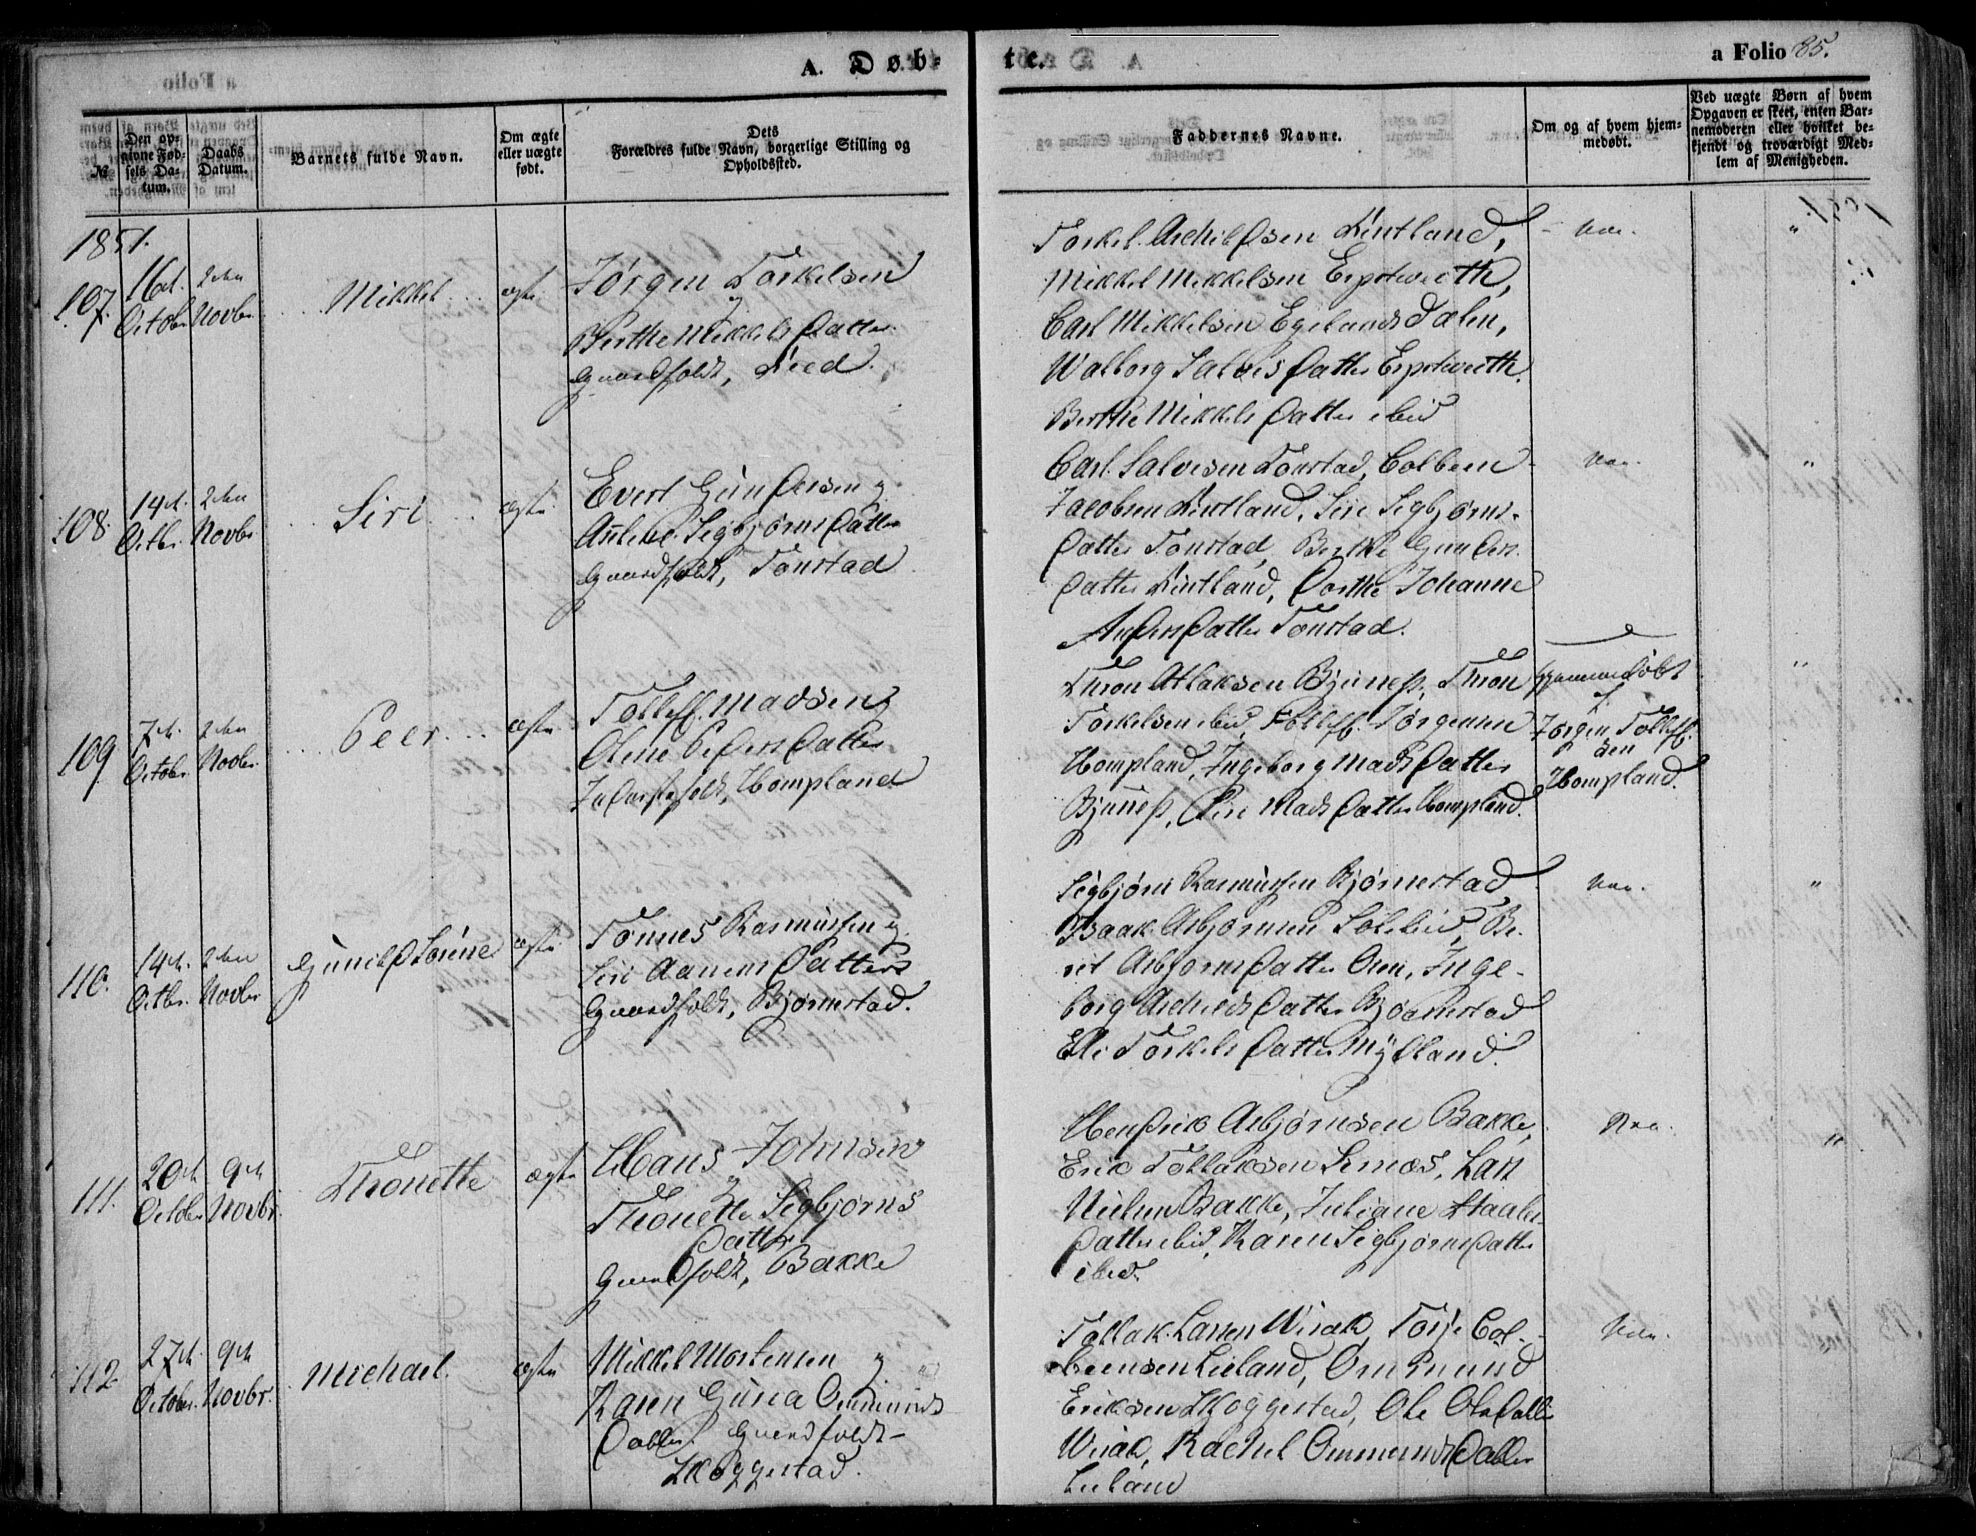 A. Døb-
te.
a Folio 85.
№
Den op-
givne Fød-
sels Da-
tum.
Daabs
Datum.
Barnets fulde Navn.
Om ægte
eller uægte
født.
Dets
Forældres fulde Navn, borgerlige Stilling og
Opholdssted.
Faddernes Navne.
Om og af hvem hjem-
medøbt.
Ved uægte Børn af hvem
Opgaven er skeet, enten Bar-
nemoderen eller hvilket be-
kjendt og troværdigt Med-
lem af Menigheden.
1851.
107.
16de
Octobr
2den
Novbr
Mikkel
ægte
Jørgen Torkelsen
og
Berthe Mikkels Datter
Gaardfolk, Lied.
Torkel Achildsen Lintland,
Mikkel Mikkelsen Erpetveeth,
Carl Mikkelsen Egelandsdalen,
Walborg Salves Datter Erpetveeth.
Berthe Mikkels Datter ibid
Nei.
"
108.
14de
Octbr
2den
Novbr
Siri
ægte
Evert Gundersen og
Anlene Segbjørns Datter
Gaardfolk, Tonstad
Carl Salvesen Tonstad, Colbeen
Jacobsen Lintland, Siri Segbjørns-
Datter Tonstad, Berthe Gunders
Datter Lintland, Dorthe Johanne
Anders Datter Tonstad.
Nei.
"
109
7de
Octobr
2den
Novbr.
Peer
ægte
Tolleff Madsen og
Oline Peders Datter
Inderstfolk, Hompland
Thron Atlaksen Bjuness, Thron
Torkelsen ibid, Tolleff Jørgensen
Hompland, Ingeborg Mads Datter
Bjuness, Siri Mads Datter Hompland.
hjemmedøbt
af
Jørgen Tolleff-
sen
Hompland.
"
110.
14de
Octbr.
2den
Novbr
Gunild Serine
ægte
Tønnes Rasmussen og
Siri Aanens Datter
Gaardfolk, Bjørnestad.
Segbjørn Rasmussen Bjørnestad
Isaak Asbjørnsen Solebird, Be-
rit Asbjørns Datter Oien, Inge-
borg Achilds Datter Bjørnestad
Elli Torkels Datter Mydland.
Nei.
"
111.
20de
Octobr
9de
Novbr.
Thonette
ægte
Hans Johnsen
og
Thonette Segbjørns
Datter
Gaardfolk, Bakke
Hendrik Asbjørnsen Bakke,
Erik Tollaksen Sirnæs, Lars
Nielsen Bakke, Juliane Staals-
Datter ibid, Karen Segbjørns Datter
ibid.
Nei.
"
112
27de
Octobr.
9de
Novbr.
Michael.
ægte
Mikkel Mortensen og
Karen Guria Ommunds
Datter. Gaardfolk-
Skoggestad.
Tollak Larsen Wirak, Torje Col-
beensen Lieland, Ommund
Eriksen Skoggestad, Ole Ols Datter
Wirak, Rachel Ommunds Datter
Lieland
Nei.
"